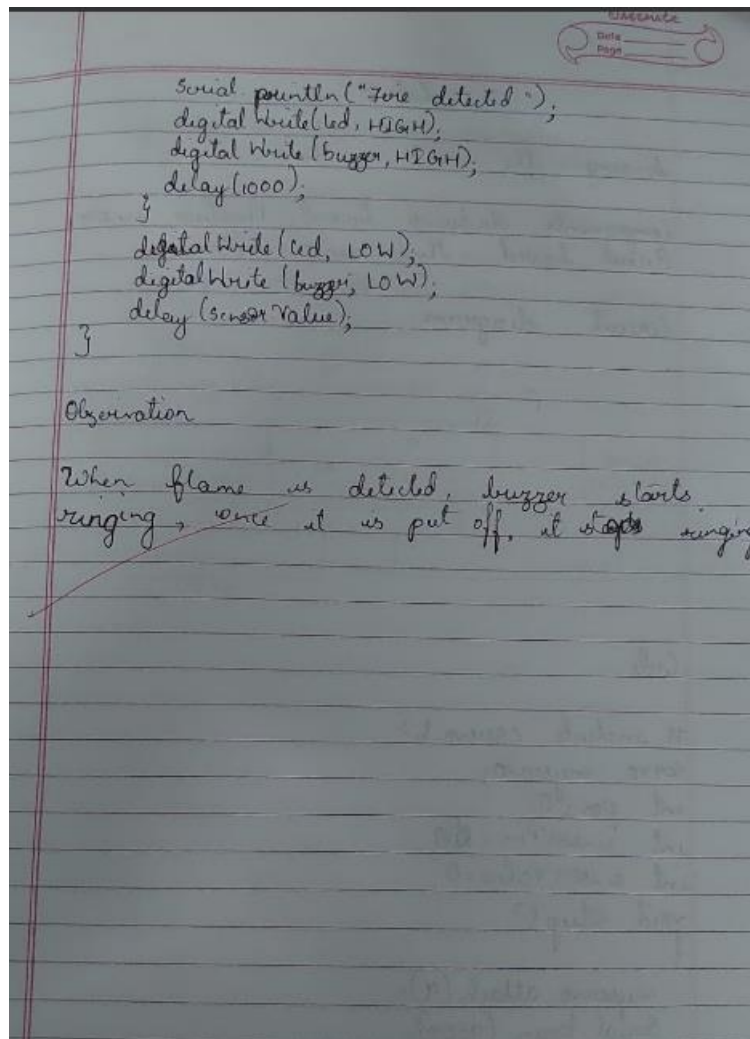 Classmate
Date
Page
Serial println("Fire detected");
digital Write(led, HIGH);
digital Write (buzzer, HIGH);
delay(1000);
}
digital Write(led, LOW);
digital Write (buzzer, LOW);
delay (sensor Value);
}
Observation
When flame is detected, buzzer starts
ringing, once it is put off, it stops ringing